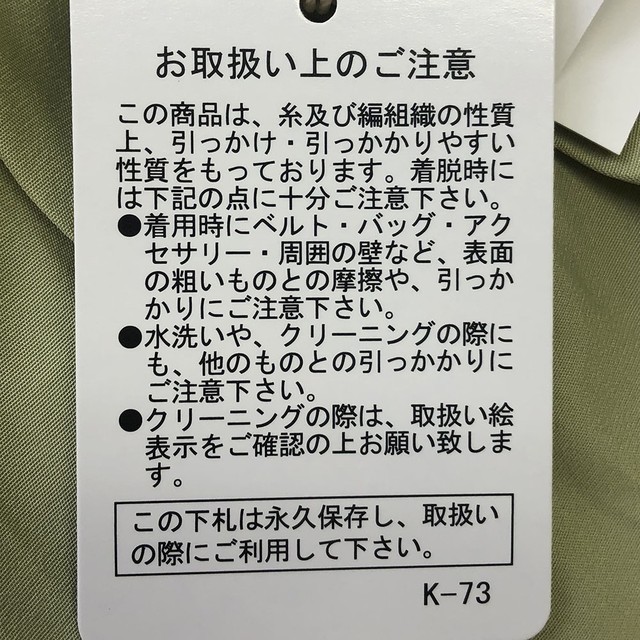 お取扱い上のご注意
この商品は、糸及び編組織の性質
上、引っかけ・引っかかりやすい
性質をもっております。着脱時に
は下記の点に十分ご注意下さい。
●着用時にベルト・バッグ・アク
セサリー・周囲の壁など、表面
の粗いものとの摩擦や、引っか
かりにご注意下さい。
●水洗いや、クリーニングの際に
も、他のものとの引っかかりに
ご注意下さい。
●クリーニングの際は、取扱い絵
表示をご確認の上お願い致しま
す。
この下札は永久保存し、取扱い
の際にご利用して下さい。
K-73